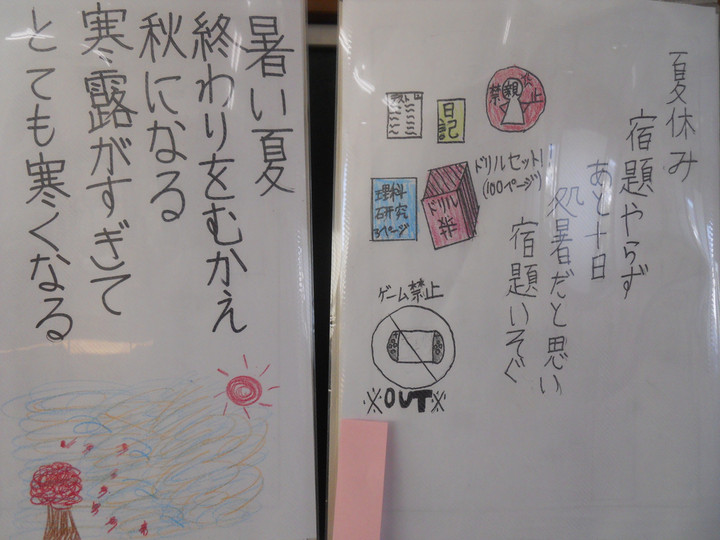 夏休み
宿題やらず
あと十日
処暑だと思い
宿題いそぐ
禁止
テスト
日記
ドリルセット!
(100ページ)
理科
研究
3ページ
ドリル
ゲーム禁止
※OUT※
暑い夏
終わりをむかえ
秋になる
寒露がすぎて
とても寒くなる